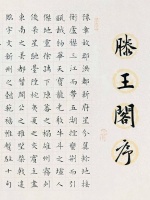 滕王閣序
豫章故郡洪都新府星分翼軫地接
衡廬襟三江而帶五湖控蠻荊而引
甌越物華天寶龍光射牛斗之墟人
傑地靈徐孺下陳蕃之榻雄州霧列
俊采星馳臺隍枕夷夏之交賓主盡
東南之美都督閻公之雅望棨戟遙
臨宇文新州之懿範襜帷暫駐十旬